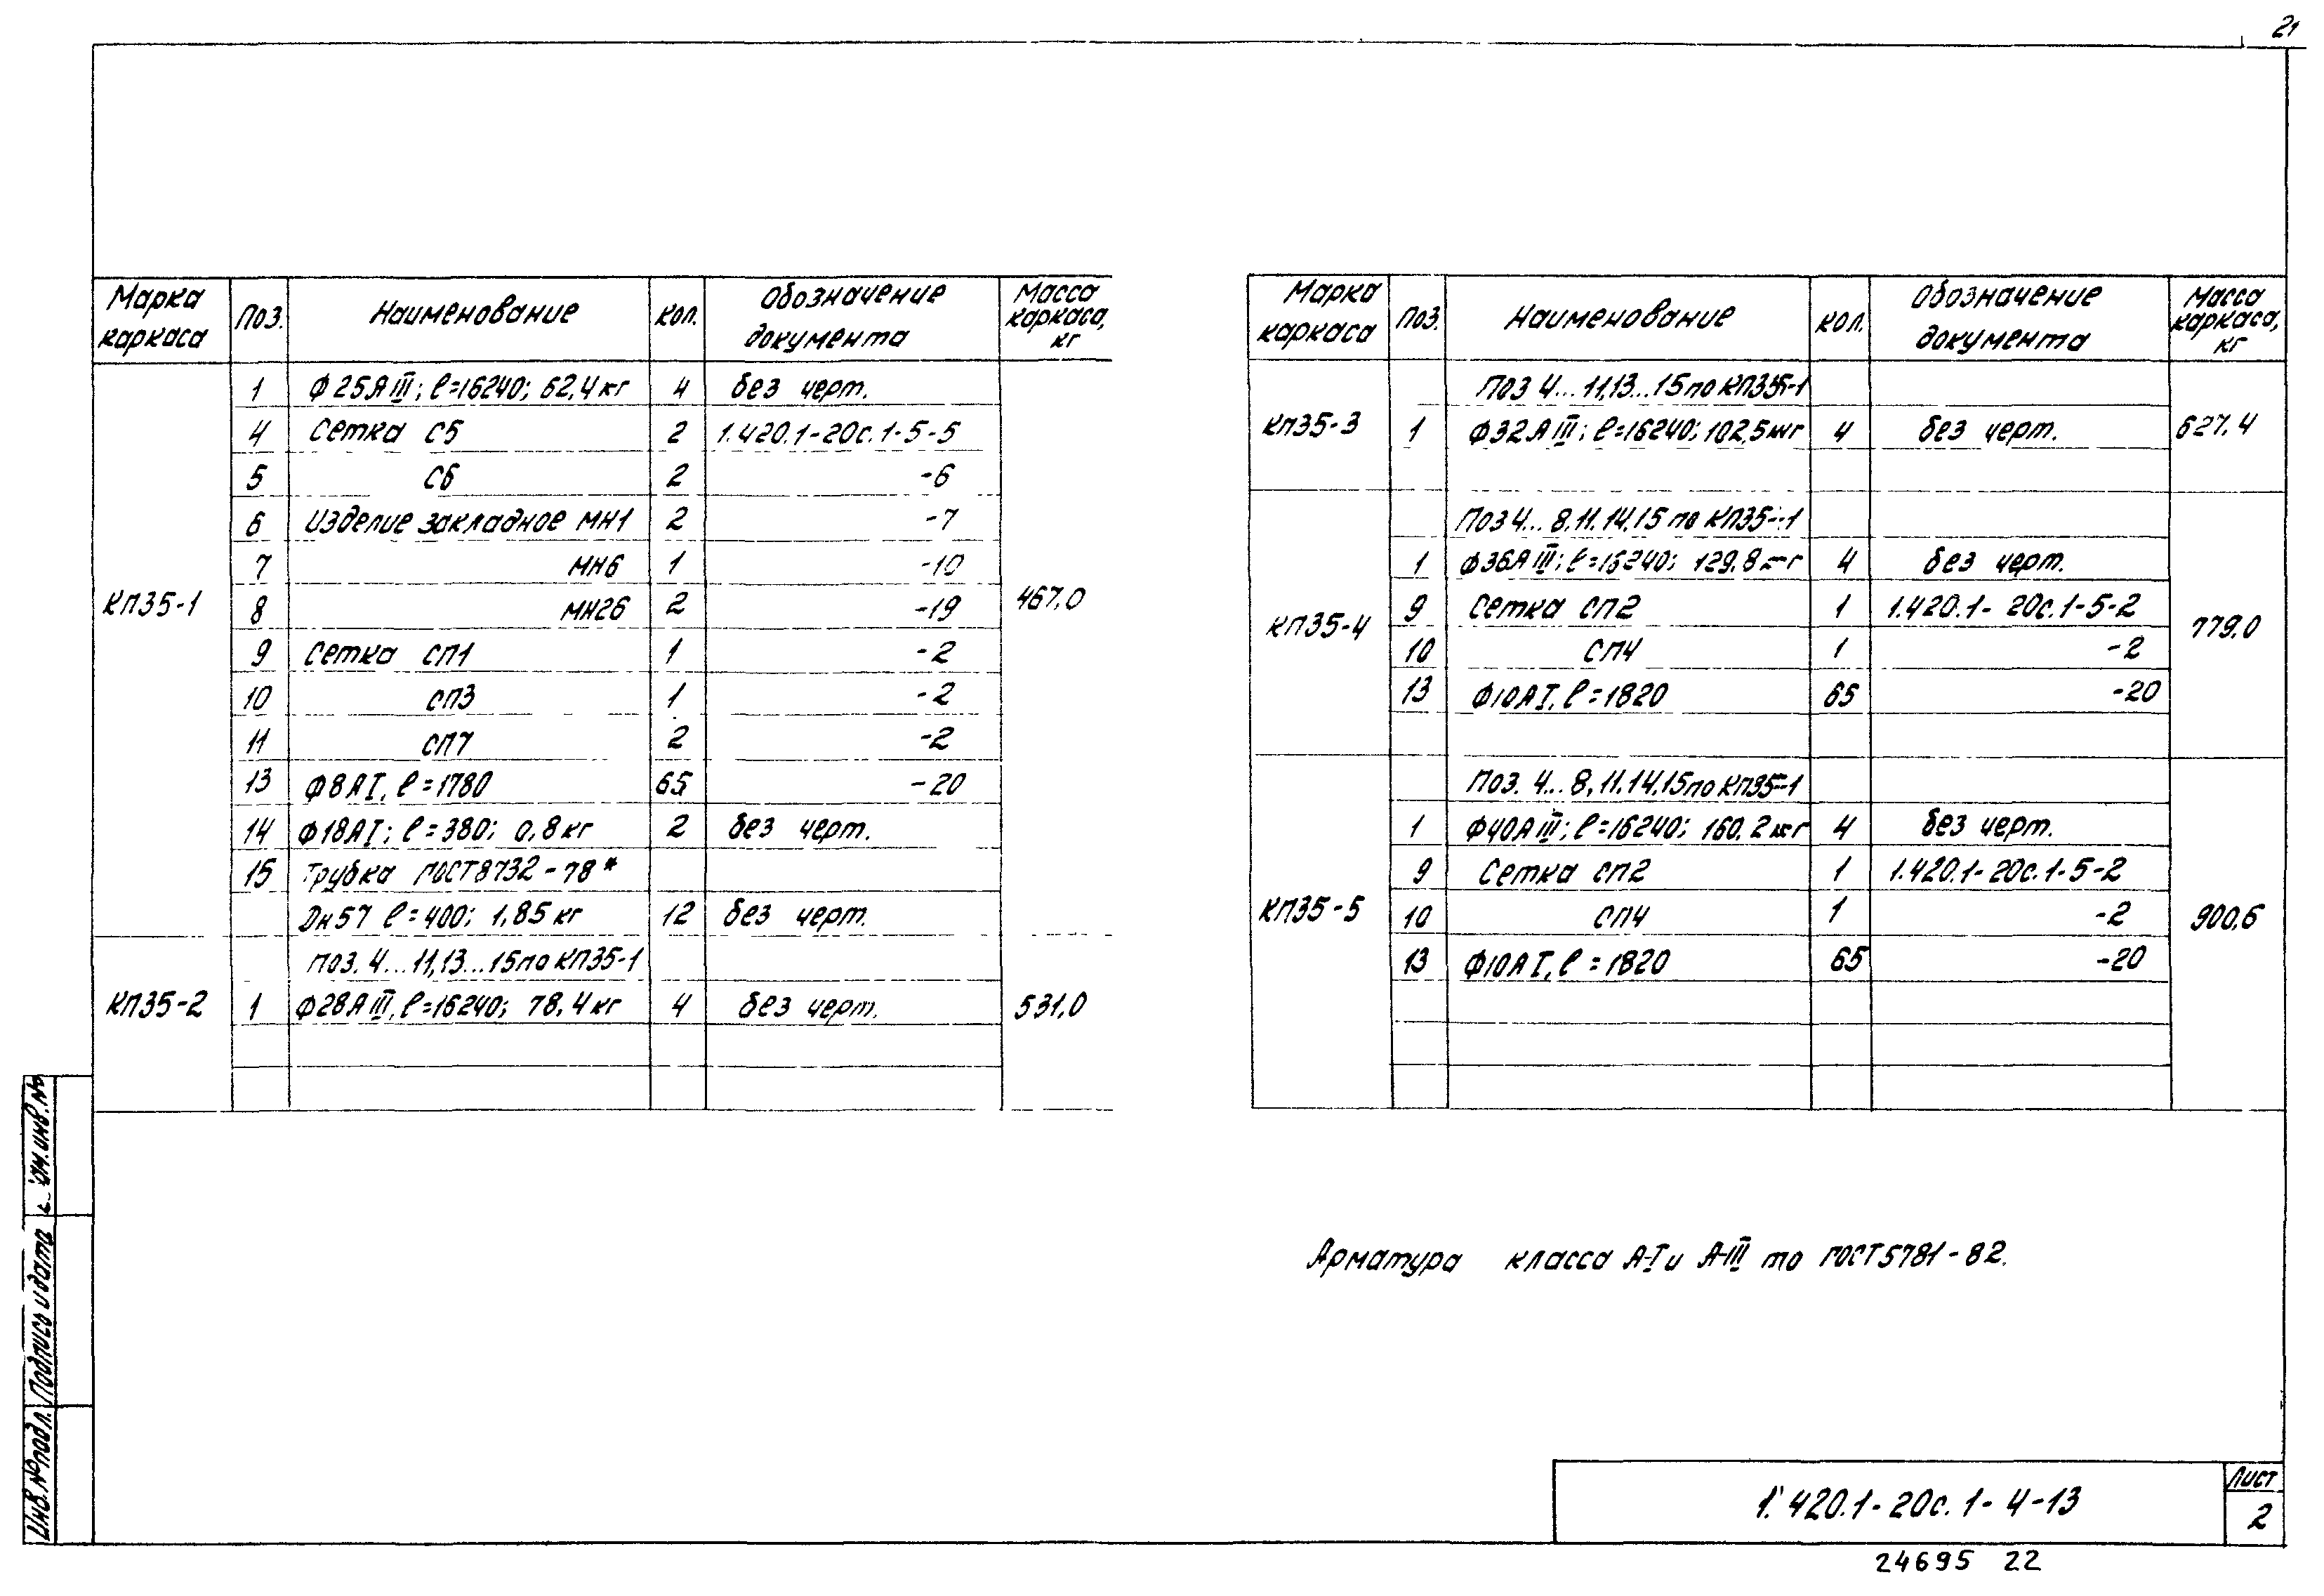 21
Марка каркаса | Поз. | Наименование | Кол. | Обозначение документа | Масса каркаса, кг
КП35-1 | 467,0
1 | Ф25АIII; ℓ=16240; 62,4кг | 4 | без черт.
4 | Сетка С5 | 2 | 1.420.1-20с.1-5-5
5 | С6 | 2 | -6
6 | Изделие закладное МН1 | 2 | -7
7 | МН6 | 1 | -10
8 | МН26 | 2 | -19
9 | Сетка СП1 | 1 | -2
10 | СП3 | 1 | -2
11 | СП7 | 2 | -2
13 | Ф8АI, ℓ=1780 | 65 | -20
14 | Ф18АI; ℓ=380; 0,8кг | 2 | без черт.
15 | Трубка ГОСТ8732-78*
Дн57 ℓ=400; 1,85кг | 12 | без черт.
КП35-2 | 531,0
поз. 4...11,13...15 по КП35-1
1 | Ф28АIII, ℓ=16240; 78,4кг | 4 | без черт.
Марка каркаса | Поз. | Наименование | Кол. | Обозначение документа | Масса каркаса, кг
КП35-3 | 627,4
Поз 4...11,13...15 по КП35-1
1 | Ф32АIII; ℓ=16240; 102,5кг | 4 | без черт.
КП35-4 | 779,0
Поз 4... 8.11.14,15 по КП35-1
1 | Ф36АIII; ℓ=16240; 129,8кг | 4 | без черт.
9 | Сетка СП2 | 1 | 1.420.1-20с.1-5-2
10 | СП4 | 1 | -2
13 | Ф10АI, ℓ=1820 | 65 | -20
КП35-5 | 900,6
Поз. 4... 8,11.14,15 по КП35-1
1 | Ф40АIII; ℓ=16240; 160,2кг | 4 | без черт.
9 | Сетка СП2 | 1 | 1.420.1-20с.1-5-2
10 | СП4 | 1 | -2
13 | Ф10АI, ℓ=1820 | 65 | -20
Арматура класса А-I и А-III по ГОСТ5781-82.
Инв.№подл. Подпись и дата инв.№
1.420.1-20с.1-4-13
Лист
2
24695 22